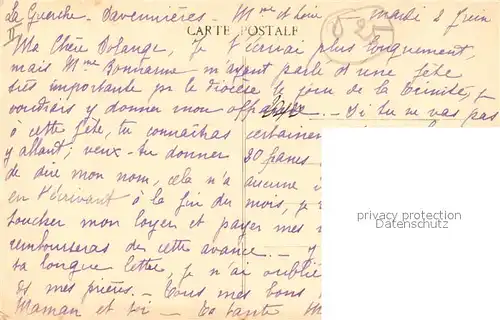 La Guerche - Savennières - Mme et Loire Mardi 2 Juin
II
CARTE POSTALE
Ma Chère Solange, Je t'écrirai plus longuement,
mais Mme Bonnanne m'ayant parlé d'une fête
très importante pr le diocèse le jour de la Trinité, je
voudrais y donner mon offrande. - Si tu ne vas pas
à cette fête, tu connaîtras certainement
y allant; veux-tu donner 20 francs
de dire mon nom, cela n'a aucune
en t'écrivant à la fin du mois, je
toucher mon loyer et payer mes
rembourseras de cette avance. - 
ta longue lettre, je n'ai oublié
ds mes prières. - Tous mes bons
Maman et toi - Ta tante M
privacy protection
Datenschutz